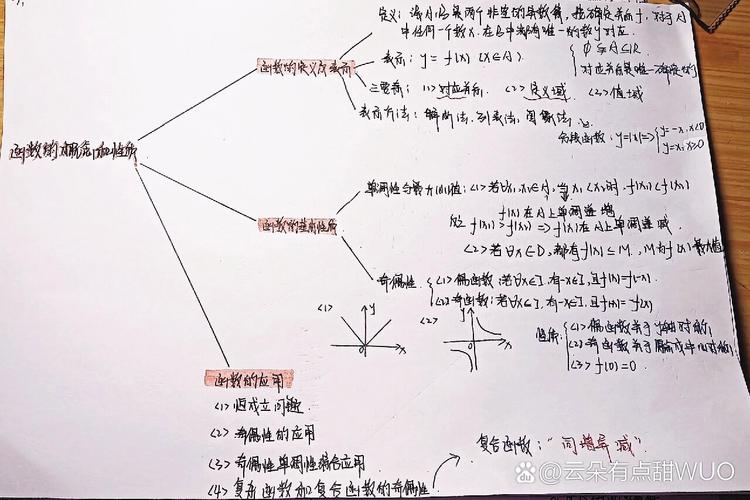 函数的概念和性质
函数的定义及表示
定义：设A,B是两个非空的实数集，按确定关系f，对于A
中任何一个数x，在B中都有唯一的数y对应。
表示：y=f(x) (x∈A)
对应关系是唯一确定的
三要素：<1>对应关系 <2>定义域 <3>值域
表示方法：解析法，列表法，图象法
分段函数：y=|x|=>{y=-x,x<0
y=x,x≥0
函数的基本性质
单调性与最大(小)值：<1>若∀x₁,x₂∈A，当x₁<x₂时，f(x₁)<f(x₂)
f(x)在A上单调递增
f(x₁)>f(x₂) => f(x)在A上单调递减
<2>若∀x∈D，都有f(x)≤M，M为f(x)最大值
奇偶性 {<1>偶函数：若∀x∈I，有-x∈I，且f(x)=f(-x)
<2>奇函数：若∀x∈I，有-x∈I，且f(-x)=-f(x)
<1> y x 0
<2> y x 0
性质：{<1>偶函数关于y轴对称；
<2>奇函数关于原点成中心对称；
<3>f(0)=0
函数的应用
<1>恒成立问题
<2>奇偶性的应用
<3>奇偶性单调性综合应用
<4>复杂函数和复合函数的奇偶性
复合函数："同增异减"
云朵有点甜WUO